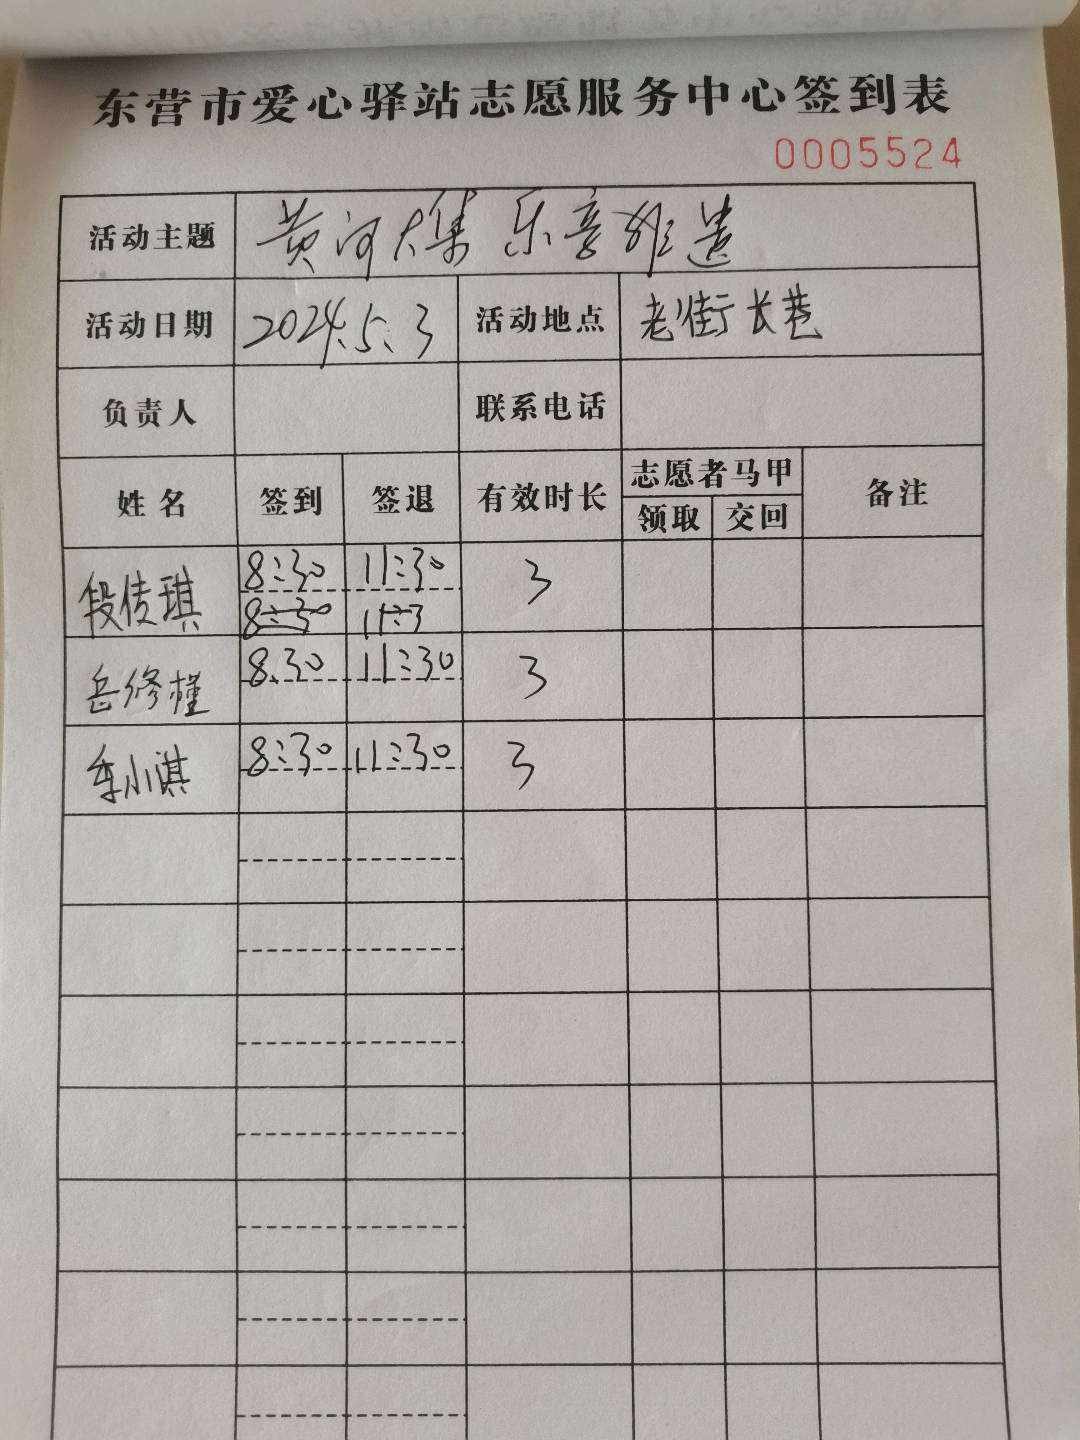 东营市爱心驿站志愿服务中心签到表
0005524
活动主题 黄河大集 乐享非遗
活动日期 2024.5.3 活动地点 老街长巷
负责人 联系电话
姓名 签到 签退 有效时长 志愿者马甲 备注
领取 交回
段传琪 8:30 11:30 3
8:30 11:3
岳修槿 8.30 11:30 3
车小淇 8:30 11:30 3